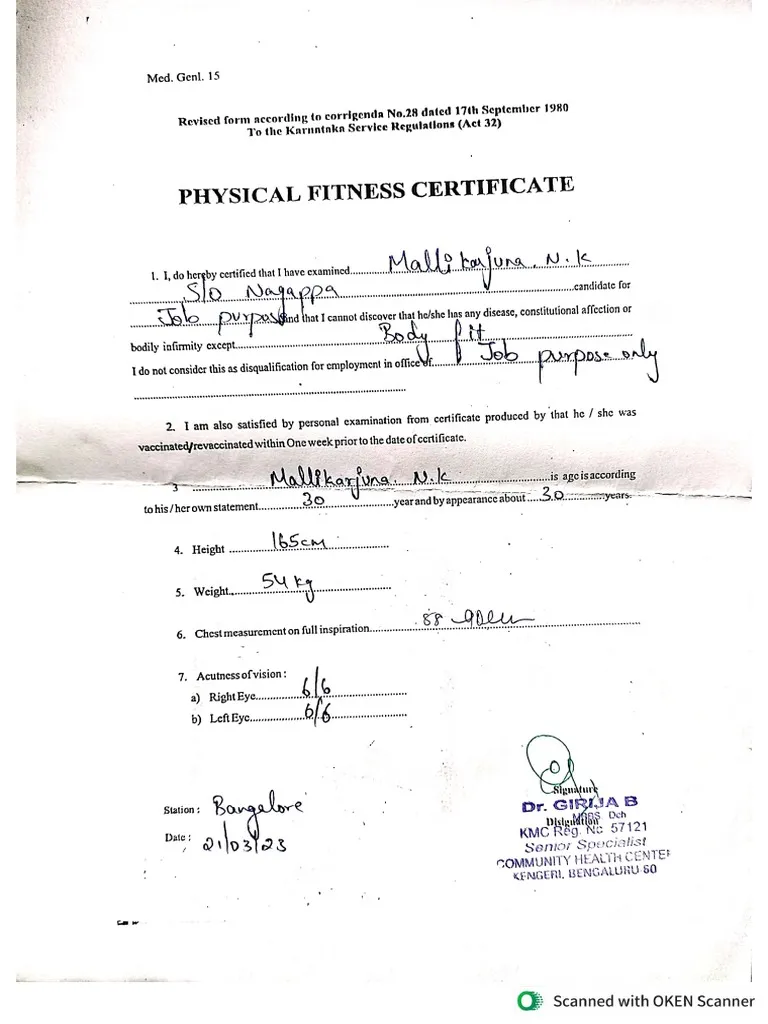 Med. Genl. 15
Revised form according to corrigenda No.28 dated 17th September 1980
To the Karnataka Service Regulations (Act 32)
PHYSICAL FITNESS CERTIFICATE
1. I, do hereby certified that I have examined Mallikarjuna. N.K
S/o Nagappa candidate for
Job purpose and that I cannot discover that he/she has any disease, constitutional affection or
bodily infirmity except Body fit
I do not consider this as disqualification for employment in office of Job purpose only
2. I am also satisfied by personal examination from certificate produced by that he / she was
vaccinated/revaccinated within One week prior to the date of certificate.
3 Mallikarjuna. N.K is age is according
to his / her own statement 30 year and by appearance about 30 years.
4. Height 165cm
5. Weight 54 kg
6. Chest measurement on full inspiration 88
7. Acutness of vision :
a) Right Eye 6/6
b) Left Eye 6/6
Signature
Dr. GIRIJA B
MBBS Dch
Disignation
KMC Reg. No 57121
Senior Specialist
COMMUNITY HEALTH CENTE
KENGERI, BENGALURU-60
Station : Bangalore
Date : 21/03/23
Scanned with OKEN Scanner